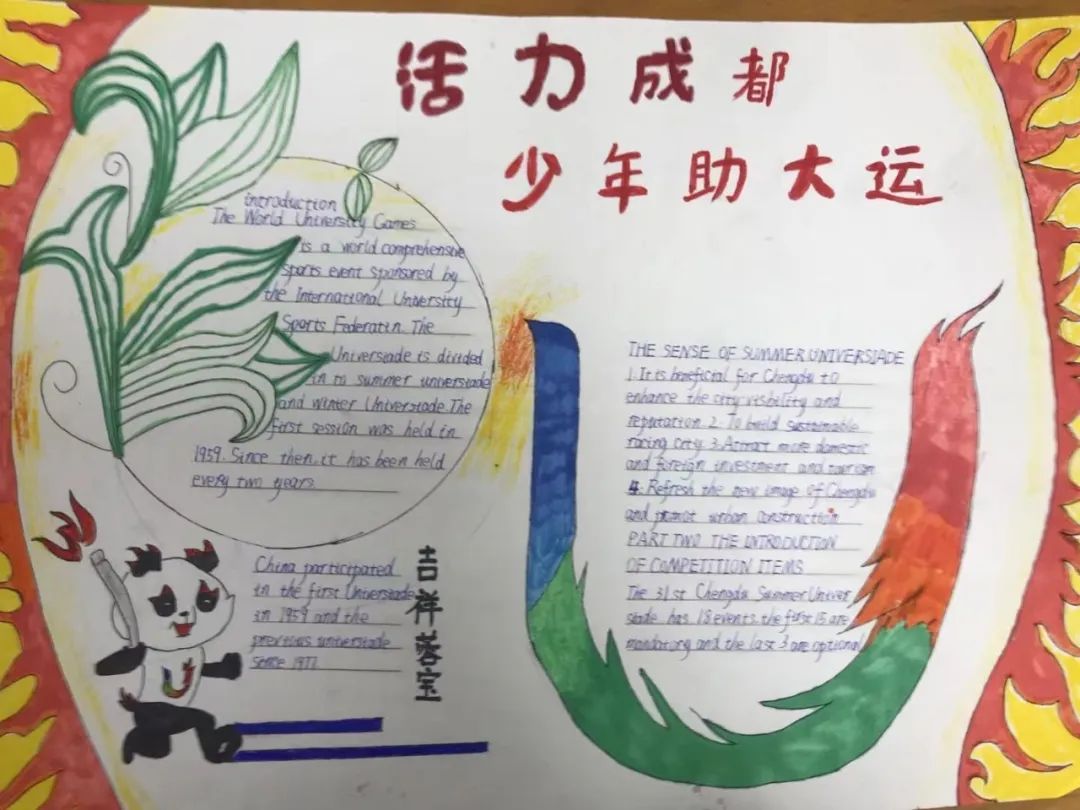 活力成都
少年助大运
introduction
The World University Games
is a world comprehensive
sports event sponsored by
the International University
Sports Federatin. The
Universiade is divided
in to summer universiade
and winter Universiade. The
first session was held in
1959. Since then, it has been held
every two years.
China participated
in the first Universiade
in 1959 and the
previous universiade
since 1977
吉祥蓉宝
THE SENSE OF SUMMER UNIVERSIADE
1. It is beneficial for Chengdu to
enhance the city visibility and
reputation 2. To build sustainable
racing city 3. Attract more domestic
and foreign investment and tourism
4. Refresh the new image of Chengdu
and promot urban construction
PART TWO THE INTRODUCTION
OF COMPETITION ITEMS
The 31st Chengdu Summer Univer
siade has 18 events. the first 15 are
mandatory and the last 3 are optional